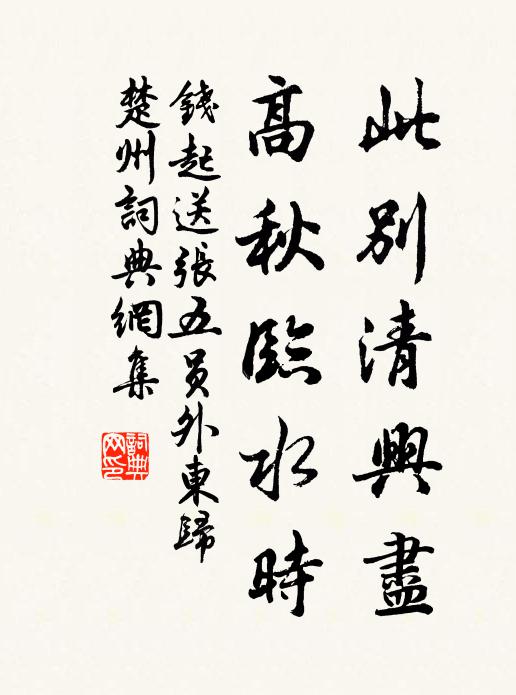 此别清興盡
高秋臨水時
錢起送張五員外東歸
楚州詞典網集
詞典网印